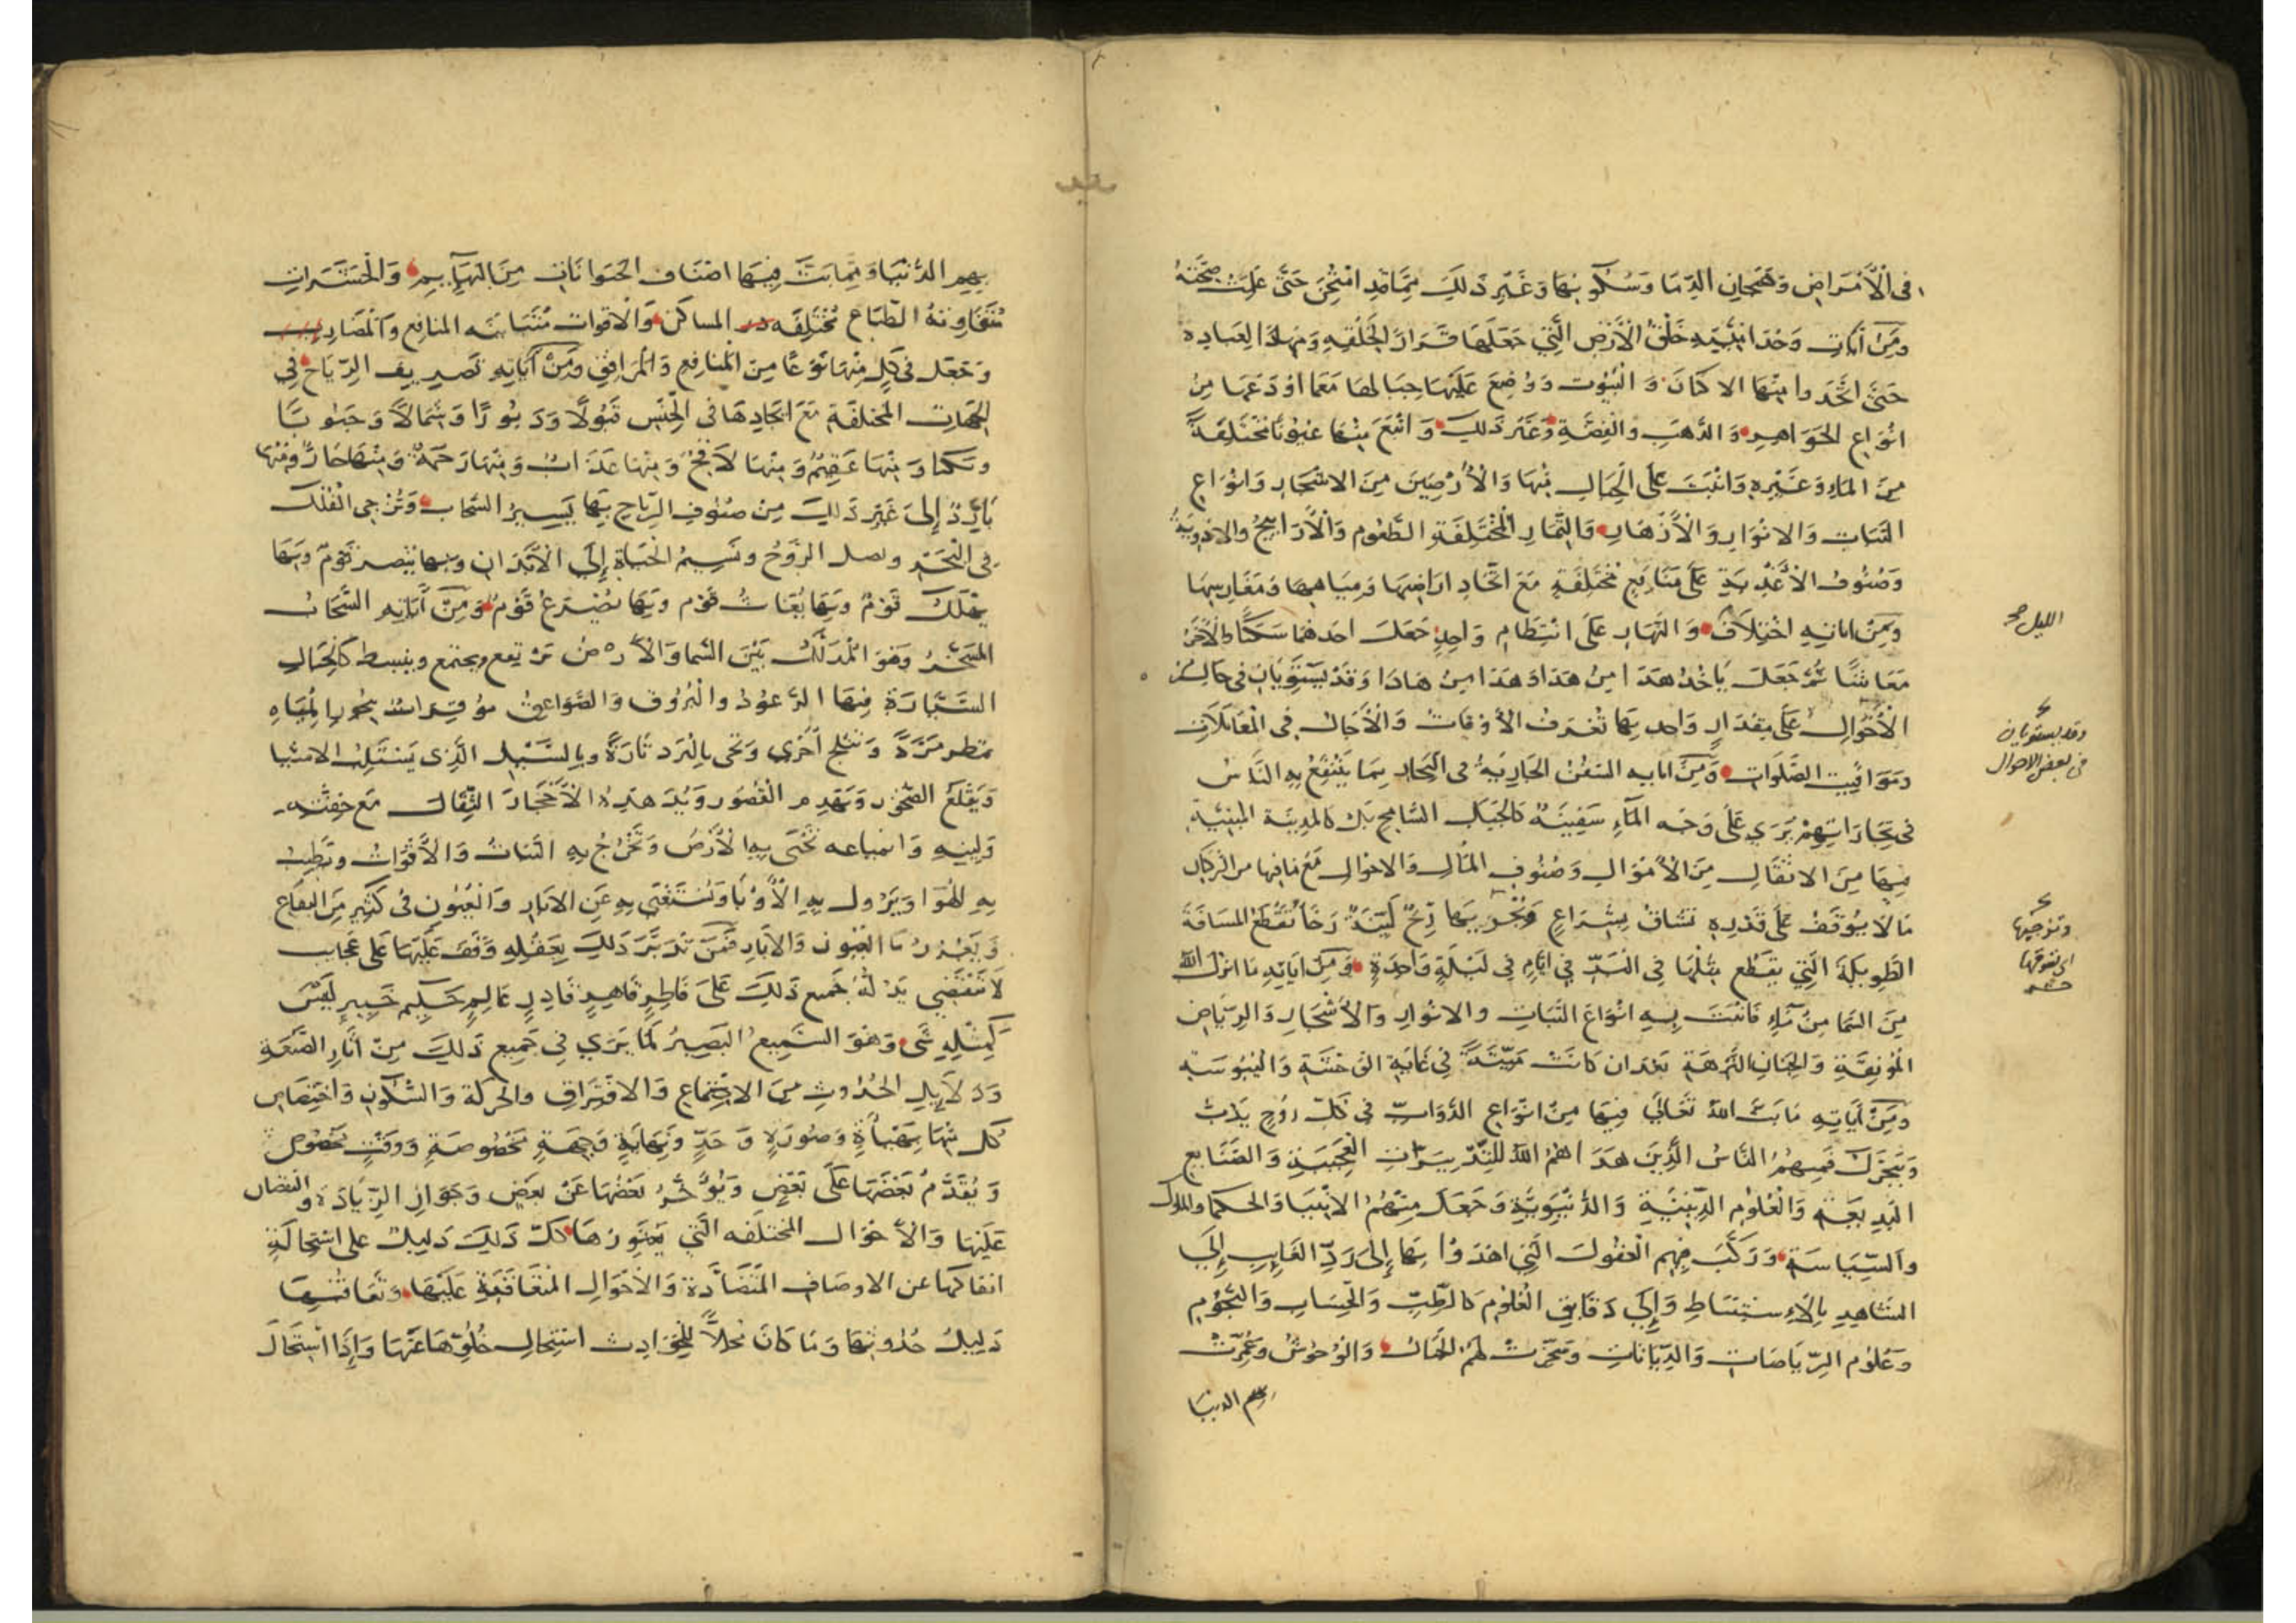 في الأمراض وهيجان الدما وسكونها وغير ذلك مما قد امتحن حتى علمت صحته
ومن آيات وحدانيته خلق الأرض التي جعلها قرارا لخلقه ومهادا لعباده
حتى اتخدوا منها الاكان والبيوت ووضع عليها جبالها معما اودعها من
انواع الجواهر والذهب والفضة وغير ذلك وانبع منها عيونا مختلفة
من الماء وغيره وانبت على الجبال منها والأرضين من الاشجار وانواع
النبات والانوار والأزهار والثمار المختلفة الطعوم والأراييح والادوية
وصنوف الأغذية على منابع مختلفة مع اتحاد اراضيها ومياهها ومغارسها
ومن اياته اختلاف والنهار على انتظام واحد جعل احدهما سكنا والآخر
معاشا ثم جعل ياخد هدا من هدا وهدا من هادا وقد يستويان في حال من
الأحوال على مقدار واحد بها تعرف الأوقات والأجال في المعاملات
ومواقيت الصلوات ومن اياته السفن الجارية في البحار بما ينتفع به الناس
في تجاراتهم يرى على وجه الماء سفينة كالجبل الشامخ بل كالمدينة المبنية
فيها من الاثقال من الأموال وصنوف المال والاحوال مع ما فيها من الركاب
ما لا يوقف على قدره تساق بشراع وتجر بها ريح لينة رخا تقطع المسافة
الطويلة التي يقطع مثلها في البر في ايام في ليلة واحدة ومن اياته ما انزل الله
من السما من ماء فانبت به انواع النبات والانوار والأشجار والرياض
المونقة والجنان النزهة بعد ان كانت ميتة في غاية الخشنة واليبوسة
ومن آياته ما بث الله تعالى فيها من انواع الدواب في كل روح يدب
ويتحرك فمنهم الناس الذين هداهم الله للتدبيرات العجيبة والصنايع
البديعة والعلوم الدينية والدنيوية وجعل منهم الانبيا والحكما والملوك
والسياسة وركب فيهم العقول التي اهتدوا بها إلى رد الغايب إلى
الشاهد بالاستنباط وإلى دقايق العلوم كالطب والحساب والنجوم
وعلوم الرياضات والديانات وسخرت لهم الجنان والوحوش وعمرت
بهم الدنيا
الليل صح
وقد يستويان
في بعض الاحوال
وتزجيها
اي تسوقها
بهم الدنيا ومما بث فيها اصناف الحيوانات من البهايم والحشرات
متفاوتة الطباع مختلفة المساكن والاقوات متباينه المنافع والمضار
وجعل في كل منها نوعا من المنافع والمرافق ومن آياته تصريف الرياح في
الجهات المختلفة مع اتحادها في الجنس قبولا ودبورا وشمالا وجنوبا
ونكبا ومنها عقيم ومنها لاقح ومنها عذاب ومنها رحمة ومنها حار ومنها
بارد إلى غير ذلك من صنوف الرياح بها يسير السحاب وتزجي الفلك
في البحر ويصل الروح ونسيم الحياة إلى الأبدان وبها ينصر قوم وبها
يهلك قوم وبها يغاث قوم وبها يصرع قوم ومن آياته السحاب
المسخر وهو المدلل بين السما والأرض يرتفع ويجتمع وينبسط كالجبال
السيارة فيها الرعود والبروق والصواعق موقرات بحور المياه
تمطر مرة وتثلج أخرى وتجي بالبرد تارة وبالسيل الذي يستلب الاشيا
ويقلع الصخور ويهدم القصور ويدهده الأحجار الثقال مع خفته
ولينه وانمياعه تحيى به الأرض وتخرج به النبات والأقوات وتطيب
به الهوا ويزول به الأوبا ويستغنى به عن الابار والعيون في كثير من البقاع
وبعدها العيون والآبار فمن تدبر ذلك بعقله وقف عليها على عجايب
لا تنقضي يدله جميع ذلك على فاطر قاهر قادر عالم حكيم خبير ليس
كمثله شى وهو السميع البصير لما يرى في جميع ذلك من آثار الصنعة
ودلايل الحدوث من الاجتماع والافتراق والحركة والسكون واختصاص
كل منها بهيأة وصورة وحد ونهاية وجهة مخصوصة ووقت مخصوص
ويقدم بعضها على بعض ويوخر بعضها عن بعض وجواز الزيادة والنقصان
عليها والأحوال المختلفة التي يعتورها كل ذلك دليل على استحالة
انفكاكها عن الاوصاف المتضادة والأحوال المتعاقبة عليها وتعاقبها
دليل حدوثها وما كان محلا للحوادث استحال خلوها عنها وإذا استحال